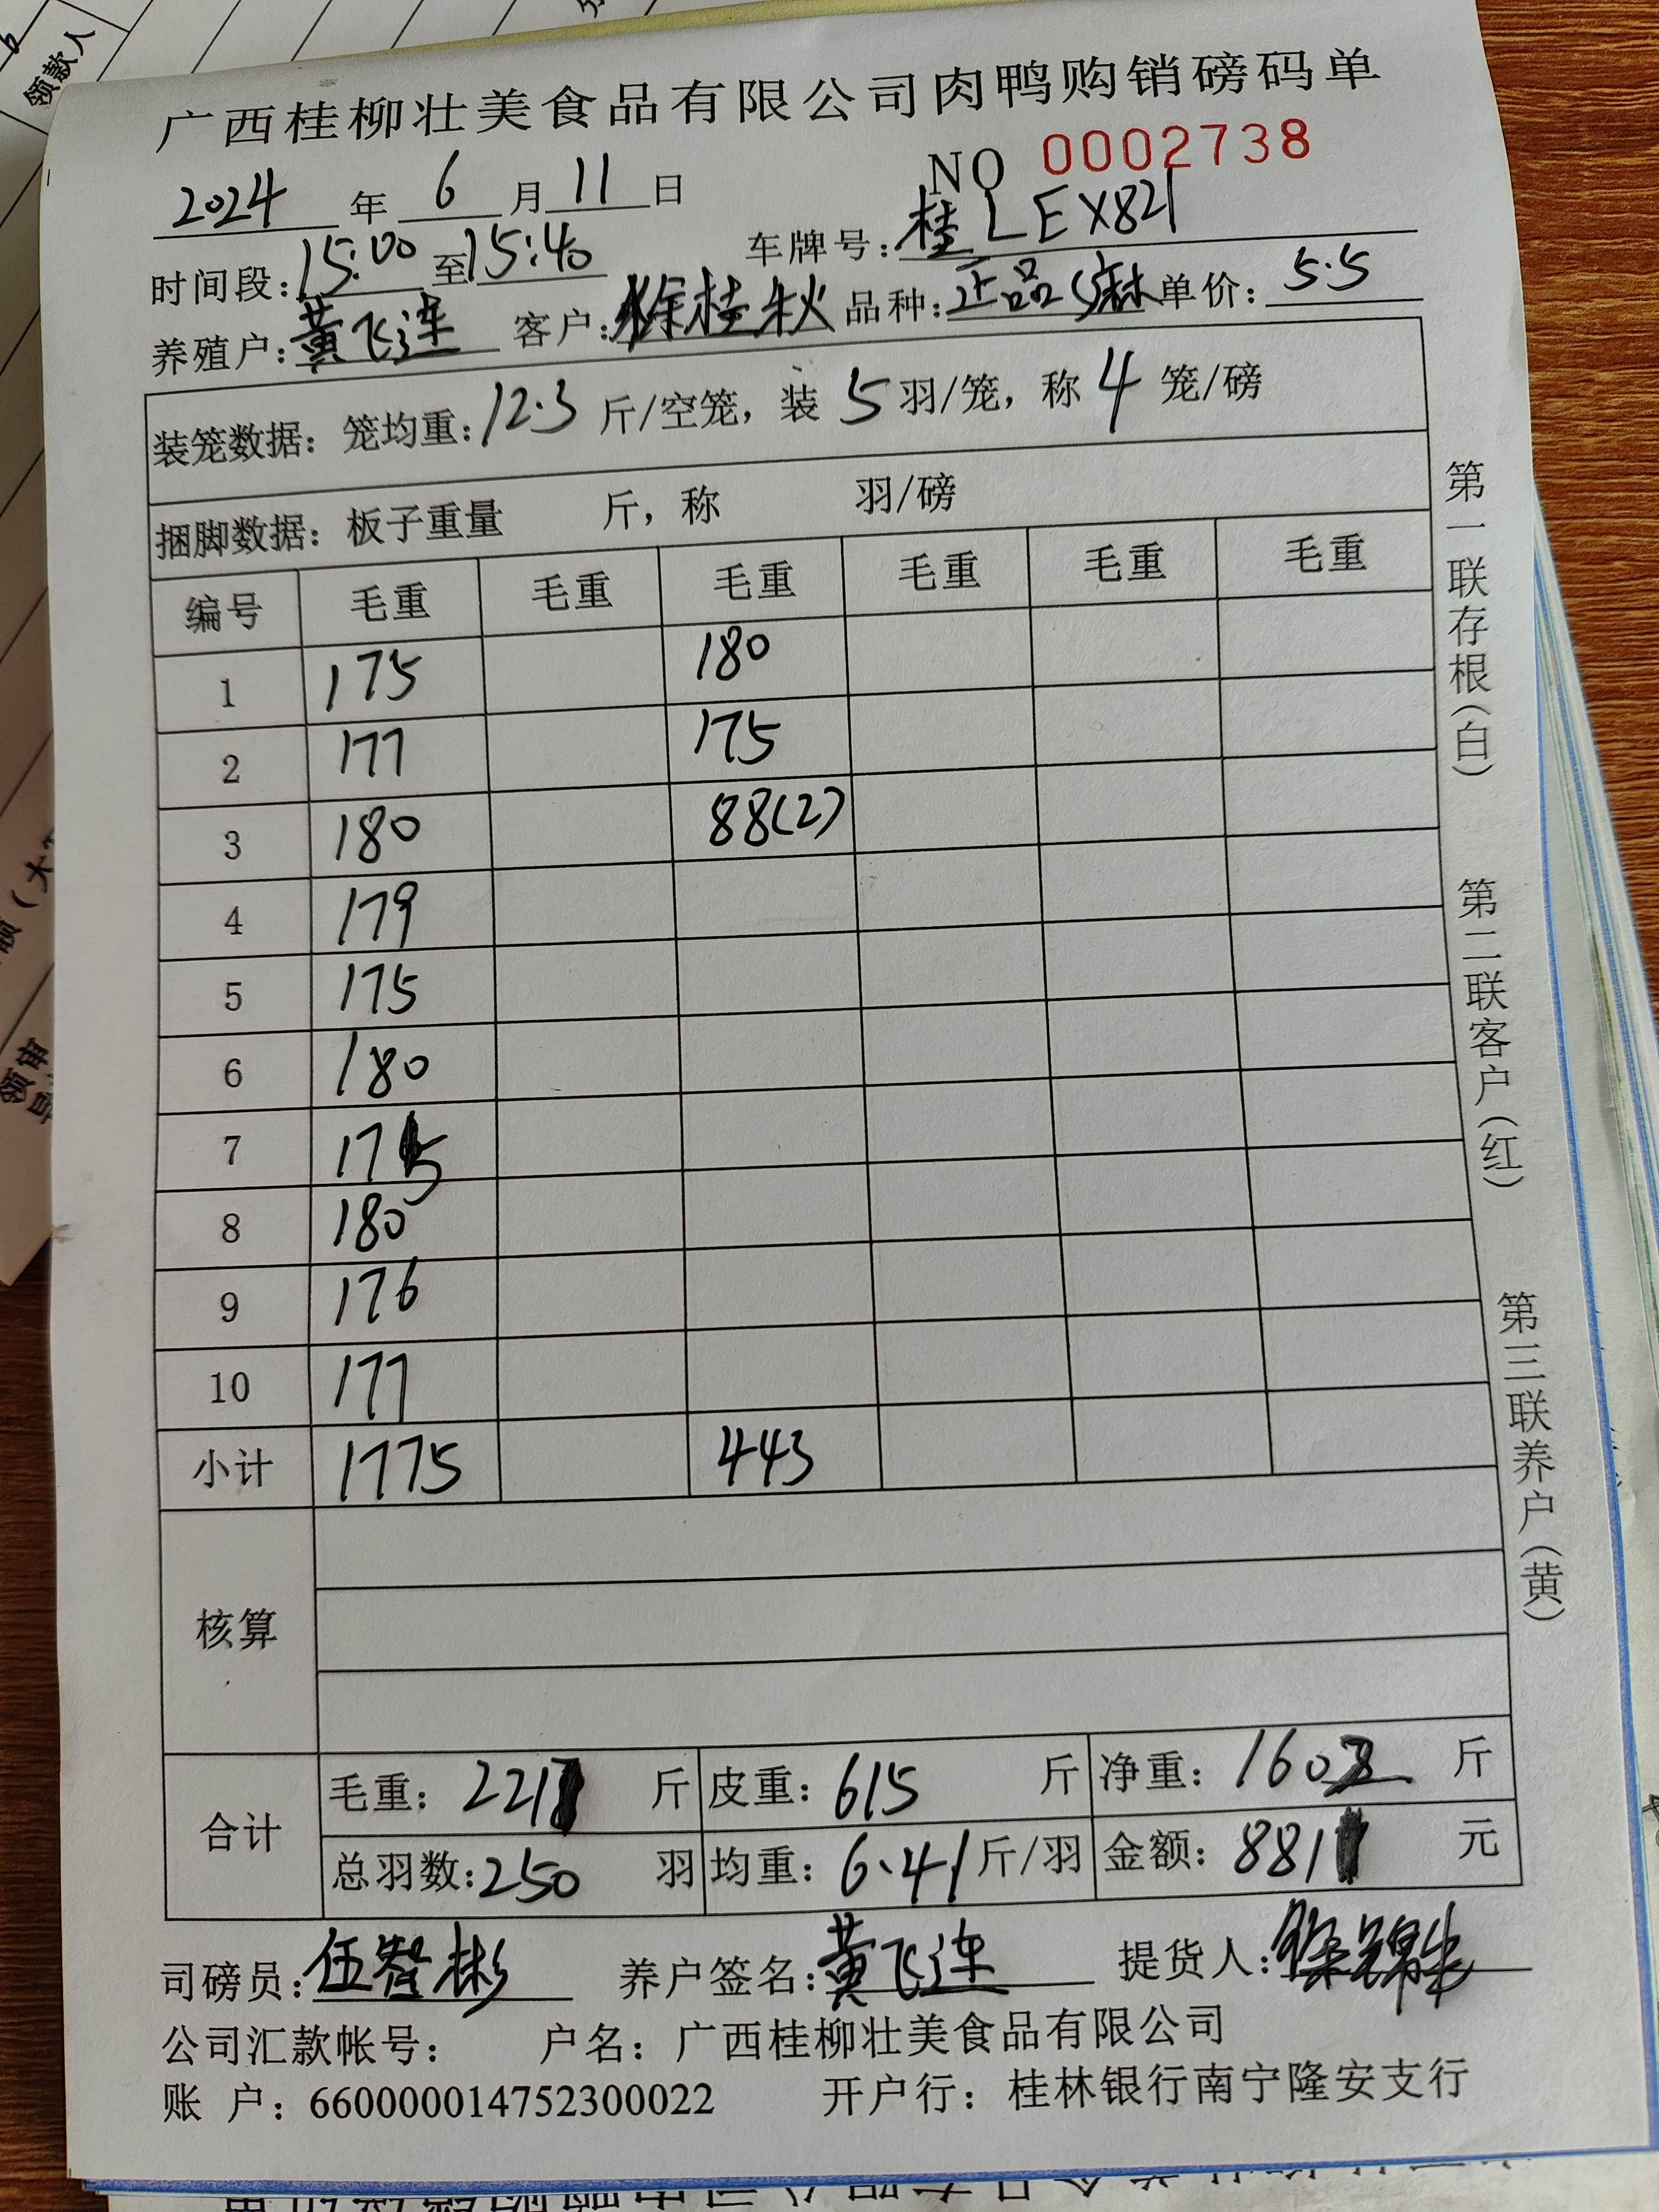 领款人
广西桂柳壮美食品有限公司肉鸭购销磅码单
NO 0002738
2024 年 6 月 11 日
时间段: 15:00 至 15:40 车牌号: 桂LEX821
养殖户: 黄飞连 客户: 徐桂秋 品种: 正品麻 单价: 5.5
装笼数据: 笼均重: 12.3 斤/空笼, 装 5 羽/笼, 称 4 笼/磅
捆脚数据: 板子重量 斤, 称 羽/磅
编号 毛重 毛重 毛重 毛重 毛重 毛重
1 175 180
2 177 175
3 180 88(2)
4 179
5 175
6 180
7 175
8 180
9 176
10 177
小计 1775 443
核算
合计
毛重: 221 斤 皮重: 615 斤 净重: 160 斤
总羽数: 250 羽 均重: 6.41 斤/羽 金额: 881 元
司磅员: 伍智彬 养户签名: 黄飞连 提货人:
公司汇款帐号: 户名: 广西桂柳壮美食品有限公司
账 户: 660000014752300022 开户行: 桂林银行南宁隆安支行
第一联存根(白)
第二联客户(红)
第三联养户(黄)